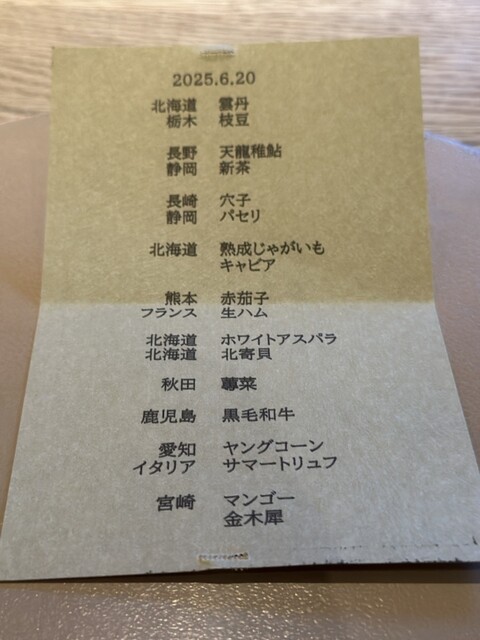 2025.6.20
北海道 雲丹
栃木 枝豆
長野 天龍稚鮎
静岡 新茶
長崎 穴子
静岡 パセリ
北海道 熟成じゃがいも
キャビア
熊本 赤茄子
フランス 生ハム
北海道 ホワイトアスパラ
北海道 北寄貝
秋田 蓴菜
鹿児島 黒毛和牛
愛知 ヤングコーン
イタリア サマートリュフ
宮崎 マンゴー
金木犀